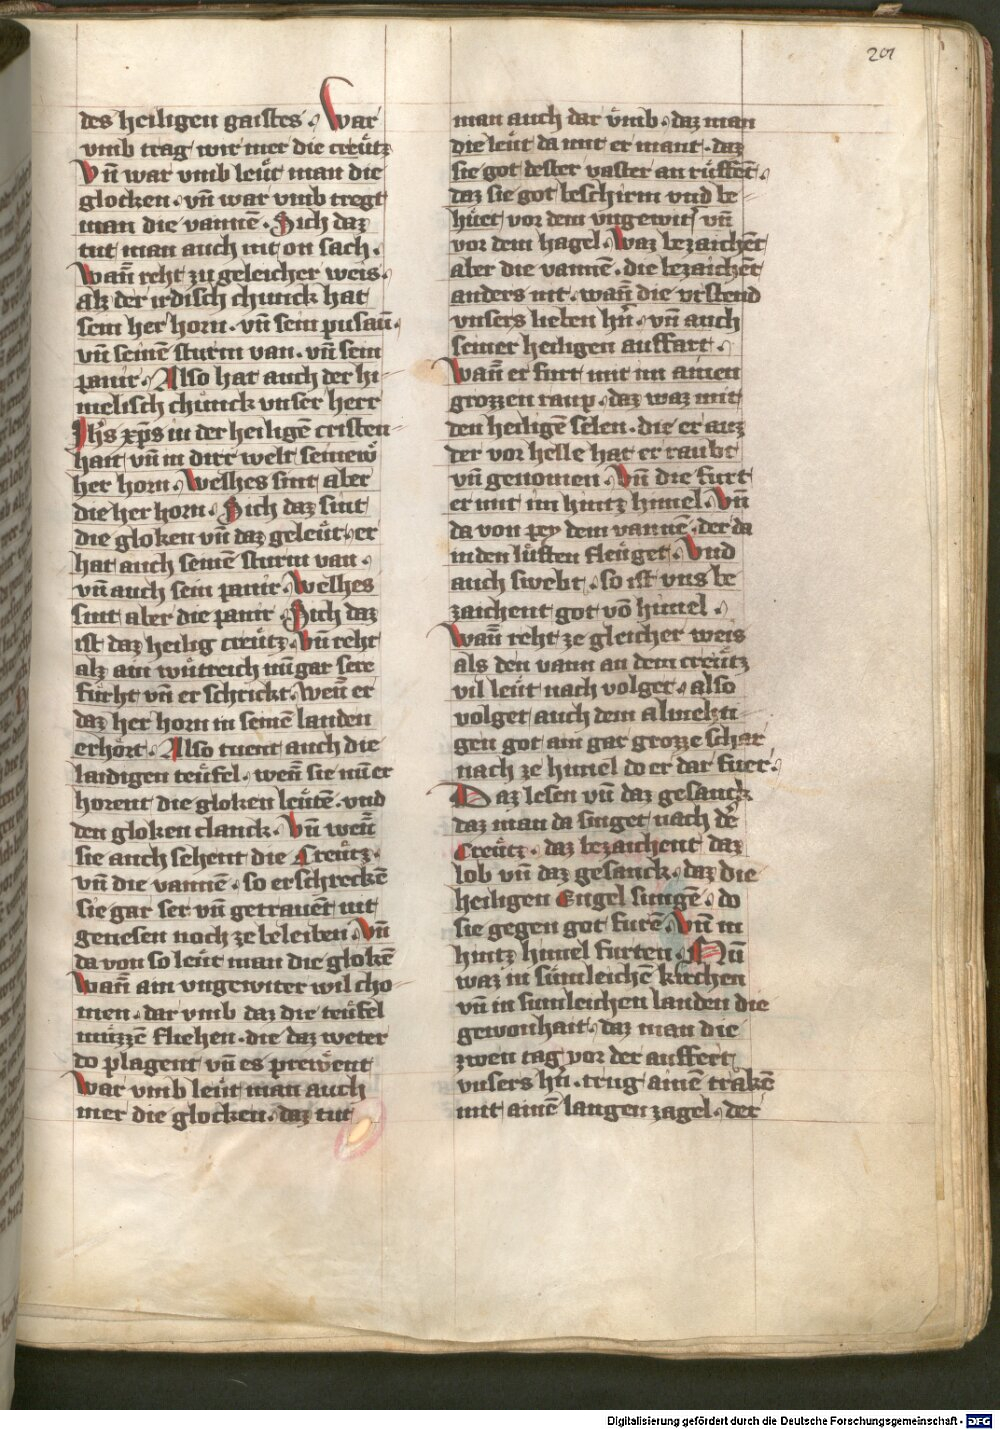 201
des heiligen gaistes. War
vmb trag wir mer die creütz
Vñ war vmb leüt man die
glocken. vñ war vmb tregt
man die vannē. Sich daz
tut man auch nit on sach.
Wañ reht zu geleicher weis.
alz der irdisch chunck hat
sein her horn. vñ sein pusaũ.
vñ seinē sturm van. vñ sein
panir. Also hat auch der hi
melisch chunck vnser herr
Jhs xp̄s in der heiligē cristen
hait vñ in dirr welt seinew̄
her horn. Welhes sint aber
die her horn. Sich daz sint
die gloken vñ daz geleüt. er
hat auch seinē sturm van.
vñ auch sein panir. Welhes
sint aber die panir. Sich daz
ist daz heilig creütz. Vñ reht
alz ain wütreich nũ gar sere
fürht vñ er schrickt. weñ er
daz her horn in seinē landen
erhört. Also tuent auch die
laidigen teüfel. weñ sie nũ er
horent die gloken leütē. vnd
den gloken clanck. Vñ weñ
sie auch sehent die Creütz.
vñ die vannē. so erschreckē
sie gar ser vñ getrauēt nit
genesen noch ze beleiben. Vñ
da von so leüt man die glokē
Wañ ain vngewiter wil cho
men. dar vmb daz die teüfel
müzzē fliehen. die daz weter
do plagent vñ es prewent
War vmb leüt man auch
mer die glocken. daz tut
man auch dar vmb. daz man
die leüt da mit er mant. daz
sie got dester vaster an rüffēt.
daz sie got beschirm vnd be
hüet vor dem vngewit' vñ
vor dem hagel. Waz bezaichēt
aber die vannē. die bezaichēt
anders nit. wañ die vrstend
vnsers lieben hr̄n. vñ auch
seiner heiligen auffart.
Wañ er furt mit im ainen
grozzen raup. daz waz mit
den heiligē selen. die er auz
der vor helle hat er raubt
vñ genomen. Vñ die furt
er mit im hintz himel. Vñ
da von pey dem vannē. der da
in den lüften fleüget. Vnd
auch swebt. so ist vns be
zaichent got vō himel.
Wañ reht ze gleicher weis
als den vann an dem creütz
vil leüt nach volget. also
volget auch dem almehti
gen got ain gar grozze schar
nach ze himel do er dar fuer.
Daz lesen vñ daz gesanck
daz man da singet nach d'
Creütz. daz bezaichent daz
lob vñ daz gesanck. daz die
heiligen Engel sungē. do
sie gegen got furē. Vñ in
hintz himel furten. Nũ
waz in sümleichē kirchen
vñ in sumleichen landen die
gewonhait. daz man die
zwen tag vor der auffert
vnsers hr̄n. trug ainē trakē
mit ainē langen zagel. der
Digitalisierung gefördert durch die Deutsche Forschungsgemeinschaft - DFG